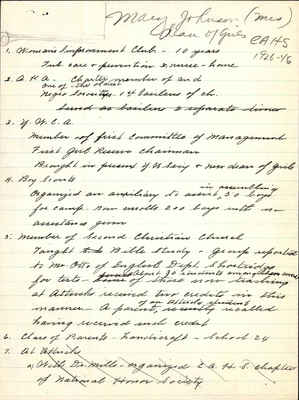 Mary Johnson (Mrs)
Dean of Girls
CAHS
1926-46
1. Woman's Improvement Club - 10 years
Tub care & prevention & nurse - home
2. A H A. - Charter member of and
one of the oldest
Negro + 4
served as
3. Y. W. C. A.
Member of first Committee of Management
First Girl Reserve Chairman
Brought in present Y W Secy & now dean of Girls
4. Boy Scouts
in assembling
Organized an auxiliary to assist, 30 boys
for camp now enrolls 200 boys with no
assistance given
5. Member of Second Christian Church
Taught Bible Study - group reported
to Mr Otto of English Dept Shortridge
for tests. about 30 students among
of those now teaching
at Attucks received two credits in this
manner - A parent, of an Attucks student recently recalled
having received such credit
6. Class of Parents - Handicraft - School 24
7. At Attucks
a) With Dr. Mills - organized C. A. H. S. chapter
of National Honor Society